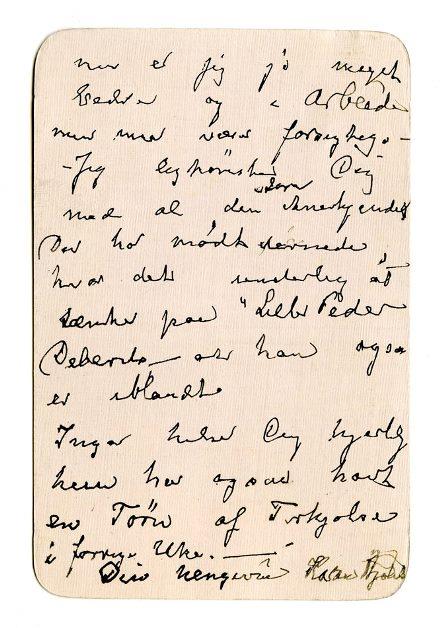 nu er jeg jo meget
bedre og i Arbeide
men maa være forsigtig. -
- Jeg lykønsker Dig
med al den Anerkjendelse som
Du har mødt dernede
hvor det underlig at
tænke paa "Lille Peder
Deberitz – at han også
er iblandt
Inga hilser Dig hjertelig
hun har også havt
en Törn af Forkjølelse
i forrige Uke. —
Din hengivne